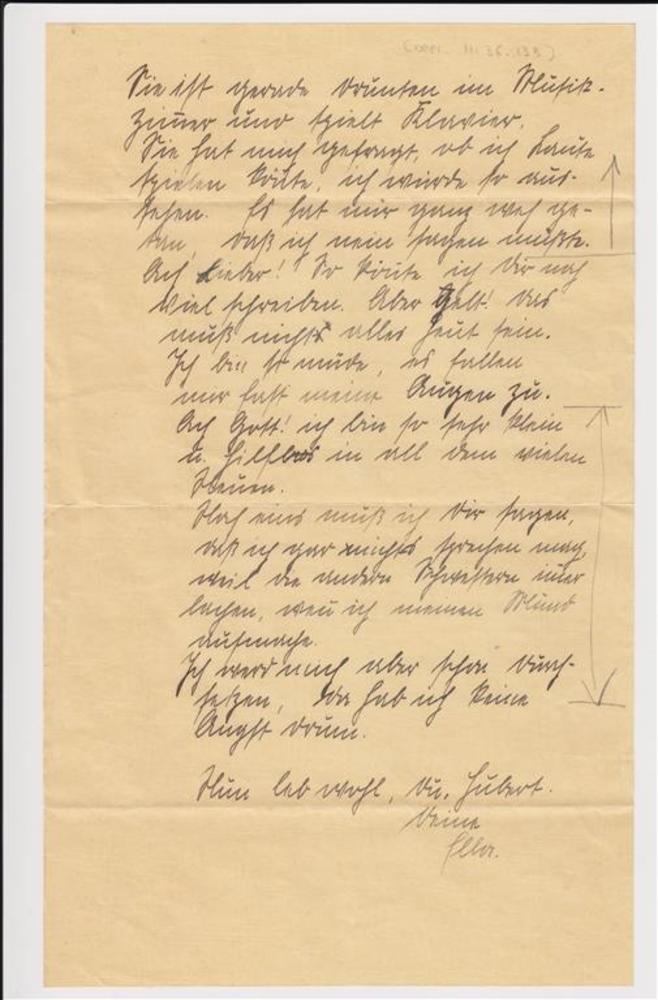 Sie ist gerade drunten im Musik-
zim̅er und spielt Klavier.
Sie hat mich gefragt, ob ich Laute
spielen kön̅te, ich würde so aus-
sehen. Es hat mir ganz weh ge-
tan, daß ich nein sagen mußte.
Ach Lieber! So kön̅te ich Dir noch
viel schreiben. Aber Gelt! das
muß nicht alles heut sein.
Ich bin so müde, es fallen
mir fast meine Augen zu.
Ach Gott! ich bin so sehr klein
u. hilflos in all dem vielen
Neuen.
Noch eins muß ich Dir sagen,
daß ich gar nichts sprechen mag,
weil die andern Schwestern im̅er
lachen, wen̅ ich meinen Mund
aufmache.
Ich werd mich aber schon durch-
setzen, da hab ich keine
Angst drum.
Nun leb wohl, Du, Hubert.
Deine
Ella.